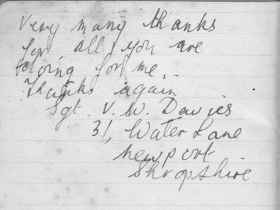 Very many thanks
for all you are
doing for me.
Thanks again
Sgt. V. W. Davies
31, Water Lane
Newport
Shropshire